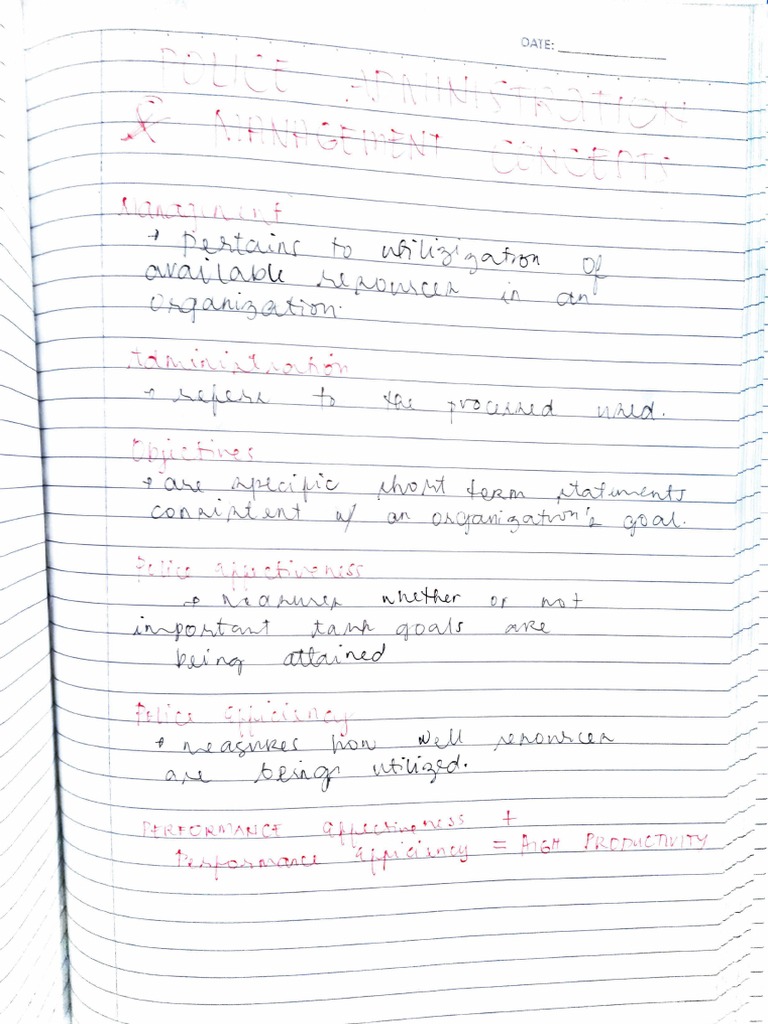 DATE:
POLICE ADMINISTRATION
& MANAGEMENT CONCEPTS
Management
→ Pertains to utiliziization of
available resources in an
organization.
Administration
→ refers to the processed used.
Objectives
→ are specific short term statements
consistent w/ an organization's goal.
Police effectiveness
→ measures whether or not
important task goals are
being attained
Police efficiency
→ measures how well resources
are being utilized.
PERFORMANCE effectiveness +
Performance efficiency = HIGH PRODUCTIVITY